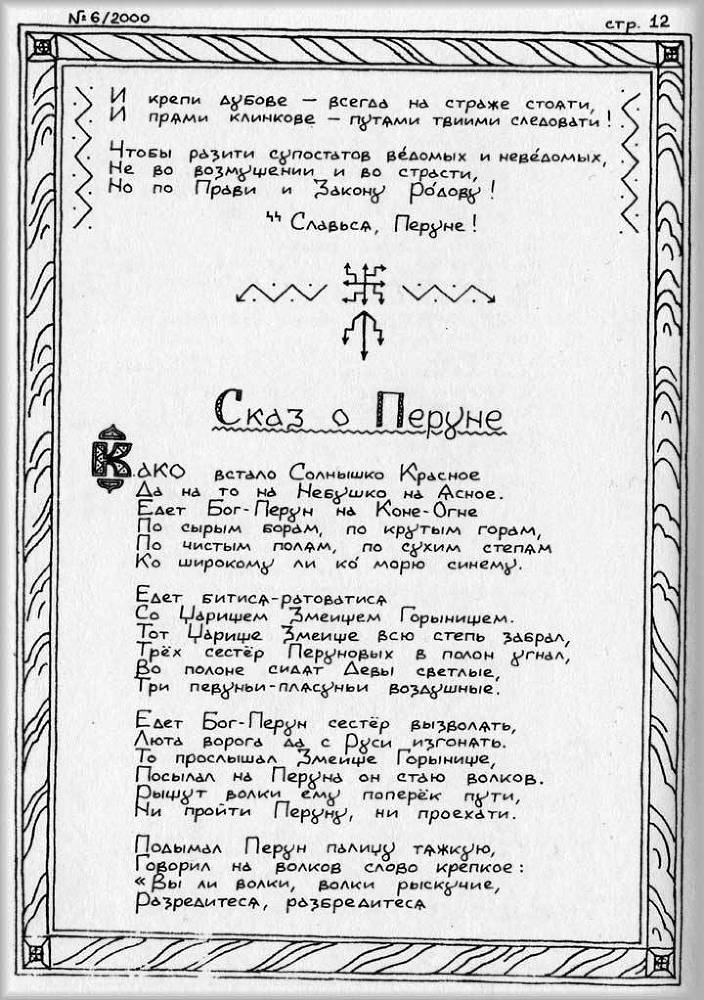 № 6/2000
стр. 12
И крепи дубове — всегда на страже стояти,
И прями клинкове — путями твиими следовати!
Чтобы разити супостатов ве́домых и неве́домых,
Не во возмущении и во страсти,
Но по Прави и Закону Ро́дову!
Славься, Перуне!
Сказ о Перуне
Како встало Солнышко Красное
Да на то на Небушко на Ясное.
Едет Бог-Перун на Коне-Огне
По сырым борам, по крутым горам,
По чистым полям, по сухим степям
Ко широкому ли ко́ морю синему.
Едет битися-ратоватися
Со Царищем Змеищем Горынищем.
Тот Царище Змеище всю степь забрал,
Трёх сестёр Перуновых в полон угнал,
Во полоне сидят Девы светлые,
Три певуньи-плясуньи воздушные.
Едет Бог-Перун сестёр вызволять,
Люта ворога да с Руси изгонять.
То прослышал Змеище Горынище,
Посылал на Перуна он стаю волков.
Рыщут волки ему поперёк пути,
Ни пройти Перуну, ни проехати.
Подымал Перун палицу тяжкую,
Говорил на волков слово крепкое:
«Вы ли волки, волки рыскучие,
Разредитеся, разбредитеся